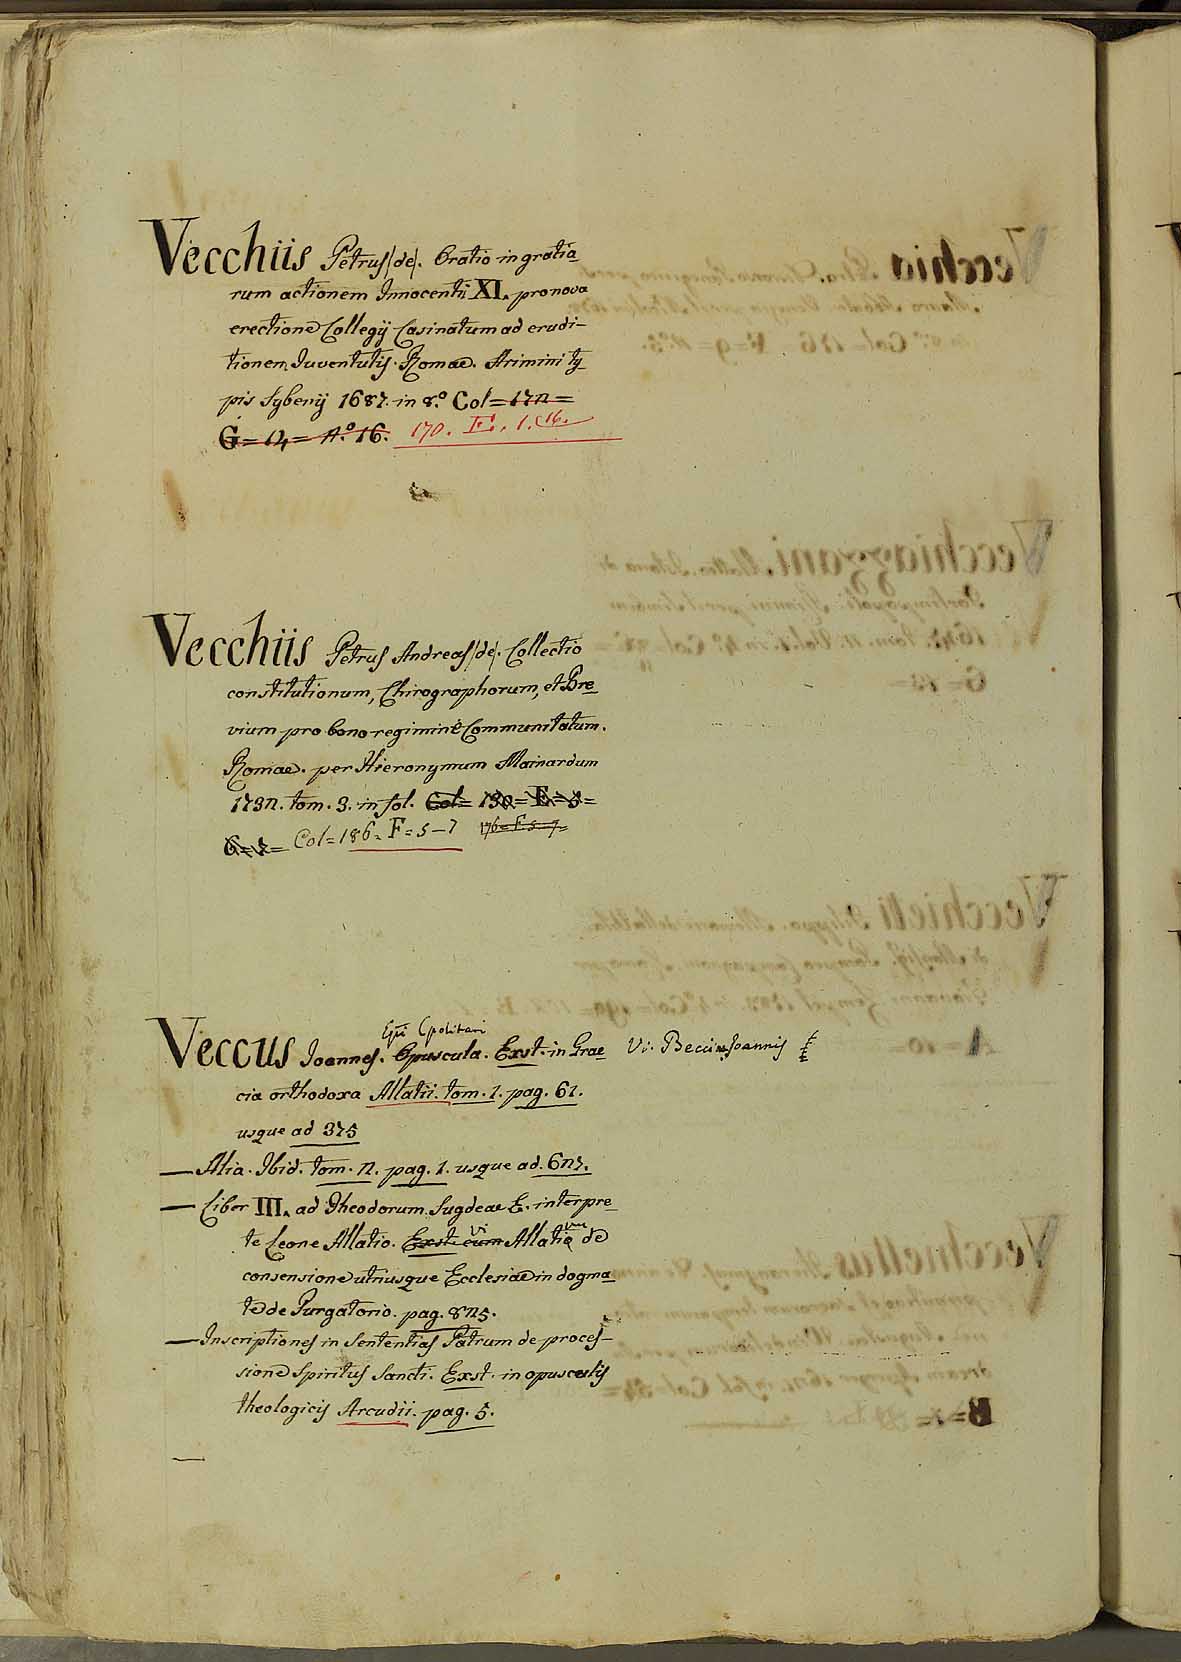 Vecchiis Petrus (de). Oratio in gratia
rum actionem Innocentii XI. pro nova
erectione Collegij Casinatum ad erudi-
tionem Juventutis. Romae. Arimini ty
pis Syberij 1687. in 8.º Col=172=
G=14= n.º 16. 170. F. 1. (16.
Vecchiis Petrus Andreas (de). Collectio
constitutionum, Chirographorum, et Bre
vium pro bono regimine Communitatum.
Romae. per Hieronymum Mainardum
1732. tom. 3. in fol. Col= 130= E=3=
6=7= Col=186= F=5-7 176=F 5-7=
Epi Cpolitani
Veccus Joannes. Opuscula. Exst. in Grae Vi. Beccus Joannis
cia orthodoxa Allatii. tom. 1. pag. 61.
usque ad 375
— Alia. Ibid. tom. 2. pag. 1. usque ad. 627.
— Liber III. ad Theodorum Sugdeae E. interpre
te Leone Allatio. Exst. cum vi Allatium de
consensione utriusque Ecclesiae in dogma
te de Purgatorio. pag. 825.
— Inscriptiones in Sententias Patrum de proces-
sione Spiritus Sancti. Exst. in opusculis
theologicis Arcudii. pag. 5.
—